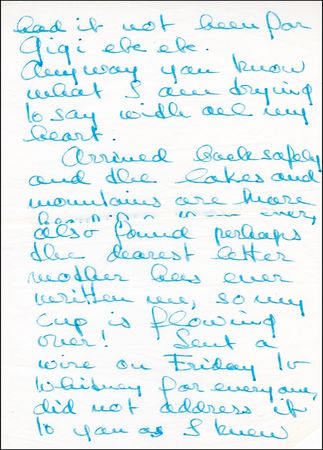 had it not been for
Gigi etc etc.
Anyway you know
what I am trying
to say with all my
heart.
Arrived back safely
and the lakes and
mountains are more
ever,
also found perhaps
the dearest letter
mother has ever
written me, so my
cup is flowing
over! Sent a
wire on Friday to
Whitney for everyone,
did not address it
to you as I knew